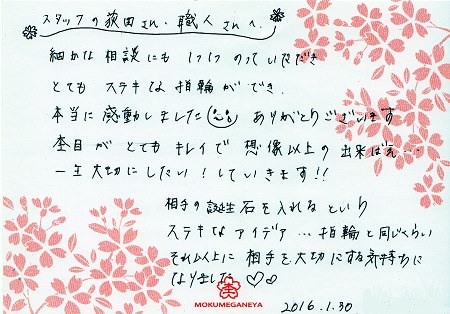 スタッフの萩田さん・職人さんへ.
細かな相談にも 1つ1つ のっていただき
とても ステキな 指輪が でき.
本当に 感動しました ありがとうございます
杢目が とても キレイで 想像以上の 出来ばえ…
一生 大切にしたい!していきます!!
相手の 誕生石を入れるという
ステキな アイデア … 指輪と同じくらい
それ以上に 相手を 大切にする気持ちに
なりました ♡♡
MOKUMEGANEYA
2016.1.30